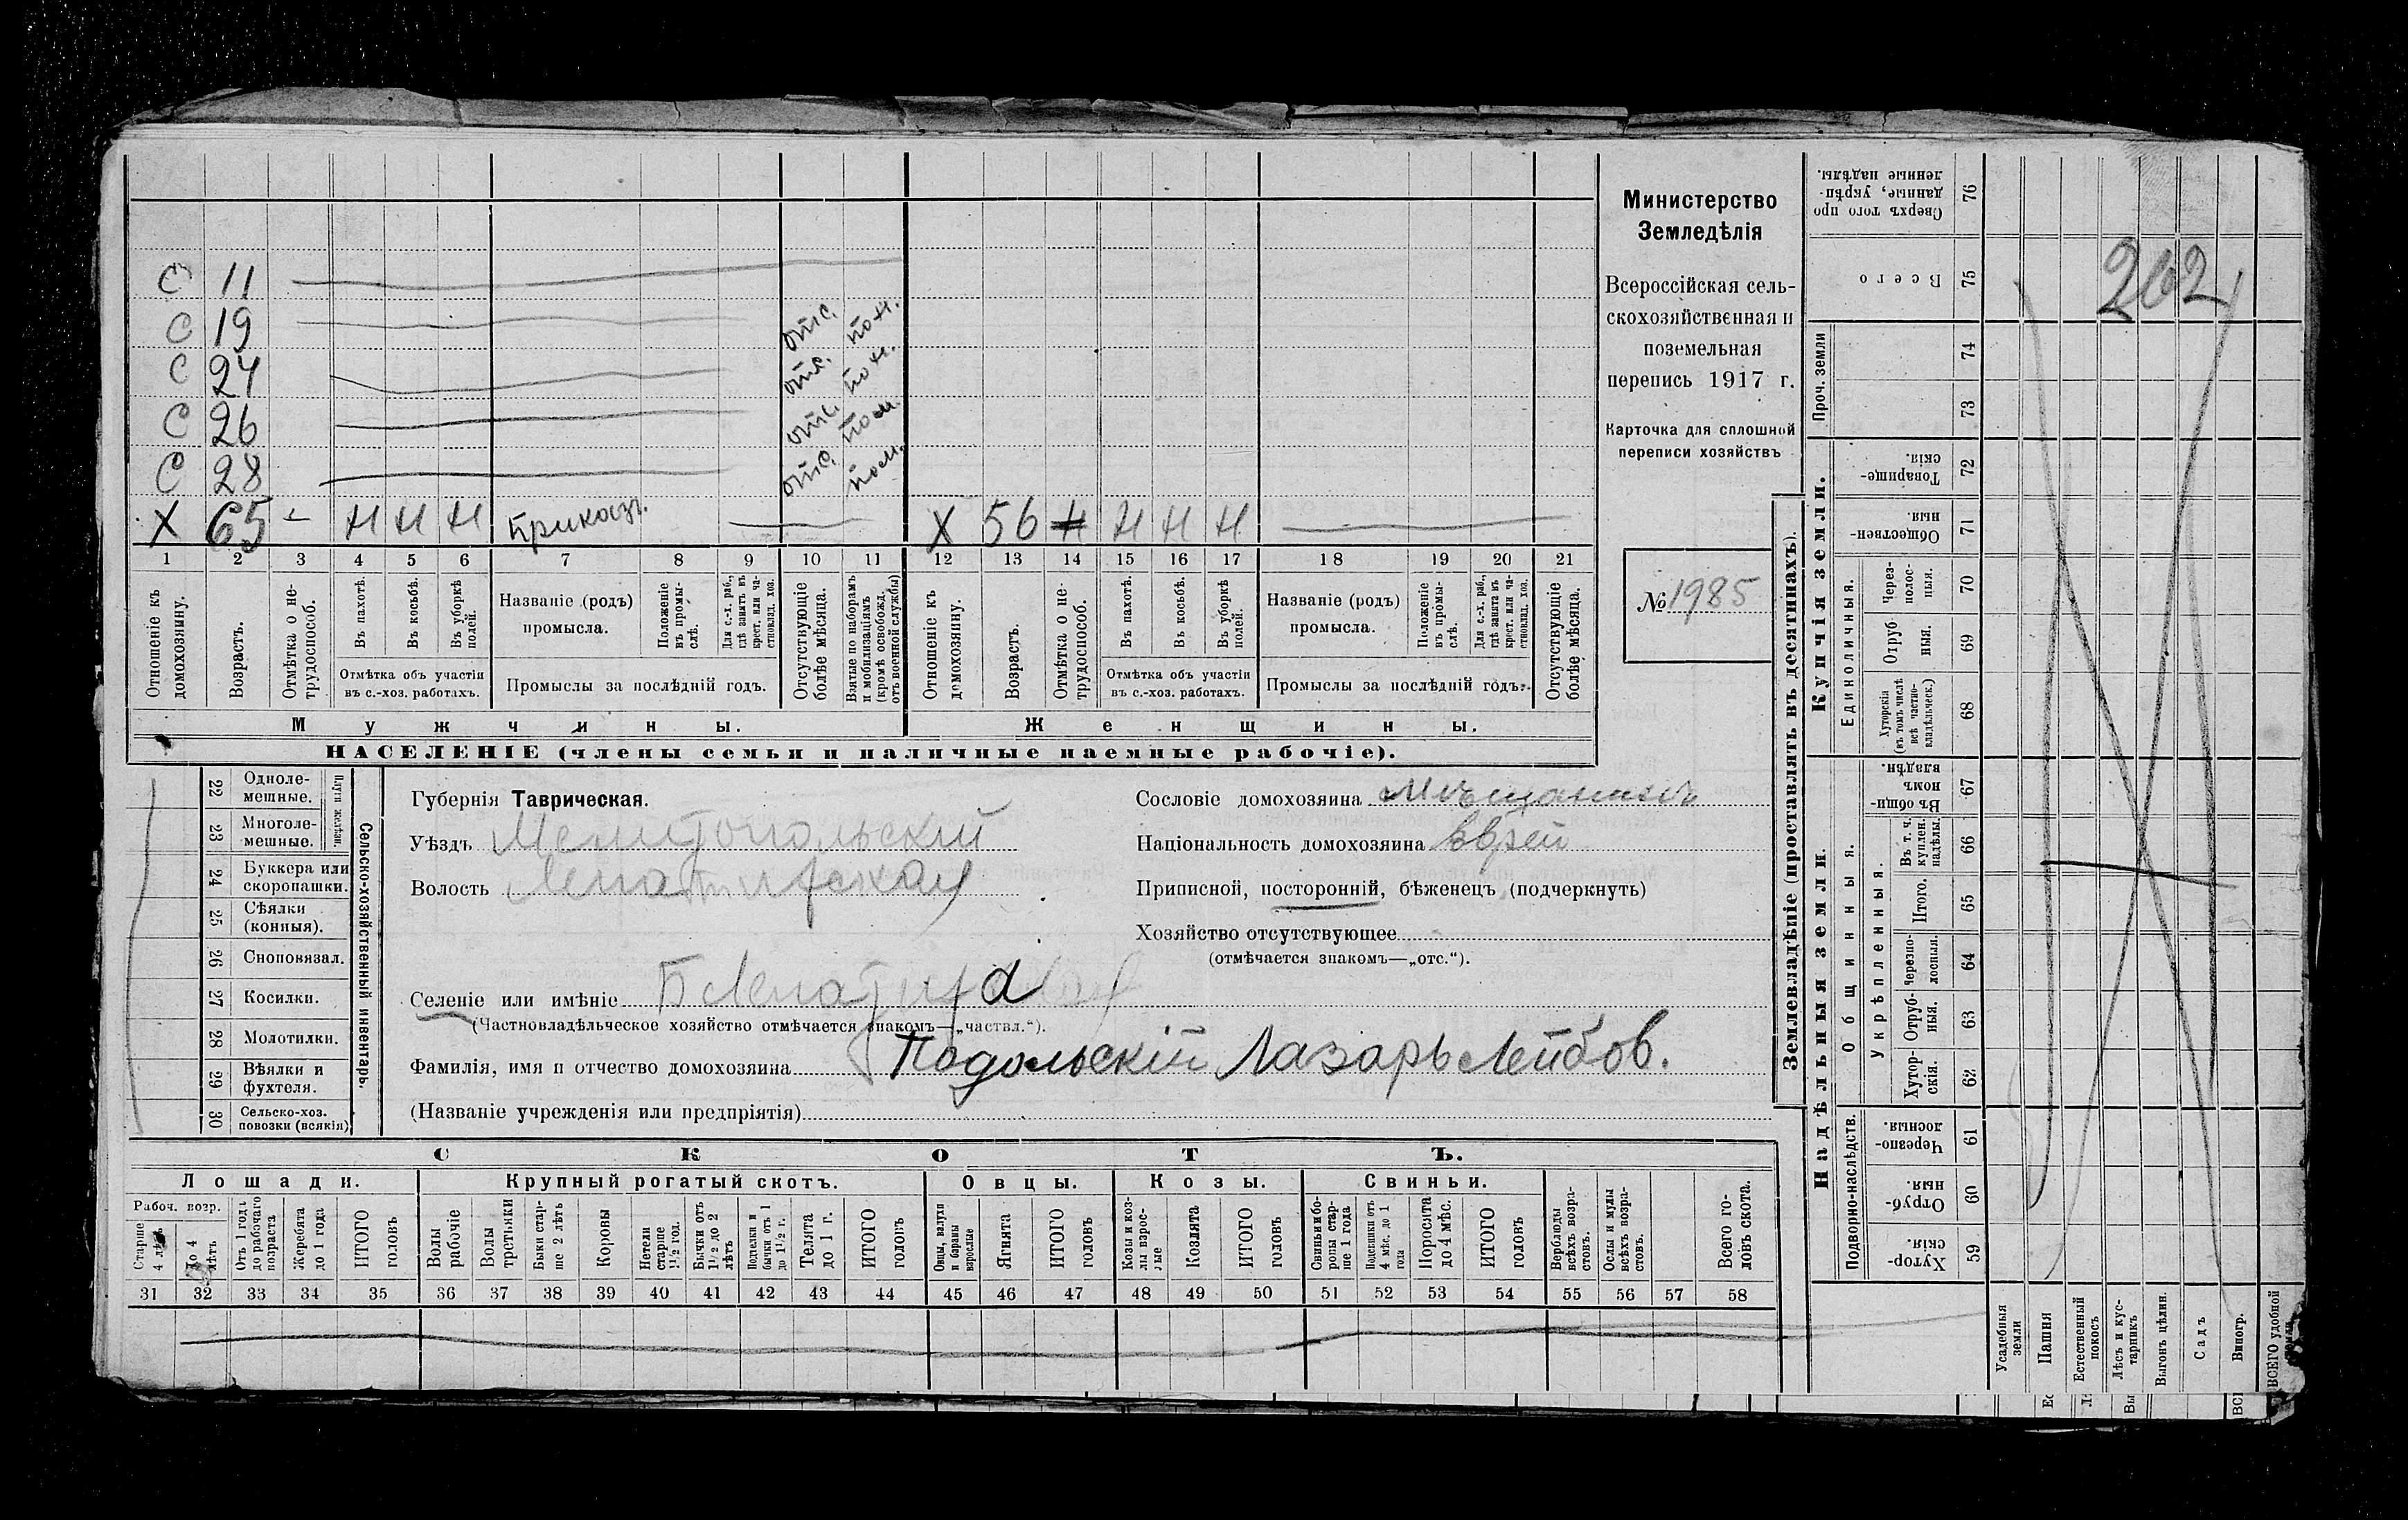 С 11
С 19 отс. по н.
С 24 отс. по н.
С 26 отс. по м.
С 28 отс. по м.
Х 65 – Н Н Н приказ. Х 56 Н Н Н Н
1 2 3 4 5 6 7 8 9 10 11 12 13 14 15 16 17 18 19 20 21
Отношеніе къ домохозяину.
Возрастъ.
Отмѣтка о не-трудоспособ.
Въ пахотѣ.
Въ косьбѣ.
Въ уборкѣ полей.
Отмѣтка объ участіи
въ с.-хоз. работахъ.
Названіе (родъ)
промысла.
Положеніе въ промы-слѣ.
Для с.-х. раб., гдѣ занятъ въ крест. или ча-стновлад. хоз.
Промыслы за послѣдній годъ.
Отсутствующіе болѣе мѣсяца.
Взятые по наборамъ и мобилизаціямъ (кромѣ освобожд. отъ военной службы)
Отношеніе къ домохозяину.
Возрастъ.
Отмѣтка о не-трудоспособ.
Въ пахотѣ.
Въ косьбѣ.
Въ уборкѣ полей.
Отмѣтка объ участіи
въ с.-хоз. работахъ.
Названіе (родъ)
промысла.
Положеніе въ промы-слѣ.
Для с.-х. раб., гдѣ занята въ крест. или ча-стновлад. хоз.
Промыслы за послѣдній годъ.
Отсутствующіе болѣе мѣсяца.
Мужчины. Женщины.
НАСЕЛЕНІЕ (члены семьи и наличные наемные рабочіе).
Министерство
Земледѣлія
Всероссійская сель-
скохозяйственная и
поземельная
перепись 1917 г.
Карточка для сплошной
переписи хозяйствъ
№ 1985
22 Одноле-мешные.
23 Многоле-мешные.
Плуги желѣзн.
24 Буккера или скоропашки.
25 Сѣялки (конныя).
26 Сноповязал.
27 Косилки.
28 Молотилки.
29 Вѣялки и фухтеля.
30 Сельско-хоз. повозки (всякія)
Сельско-хозяйственный инвентарь
Губернія Таврическая.
Уѣздъ Мелитопольскій
Волость Лепатихская
Селеніе или имѣніе Б Лепатиха
(Частновладѣльческое хозяйство отмѣчается знакомъ—„частвл.“).
Фамилія, имя и отчество домохозяина Подольскій Лазарь Лейбов.
(Названіе учрежденія или предпріятія)
Сословіе домохозяина Мѣщанинъ
Національность домохозяина Еврей
Приписной, посторонній, бѣженецъ (подчеркнуть)
Хозяйство отсутствующее
(отмѣчается знакомъ—„отс.“).
СКОТЪ.
Лошади. Крупный рогатый скотъ. Овцы. Козы. Свиньи.
Рабоч. возр.
Старше 4 лѣтъ
До 4 лѣтъ
Отъ 1 года до рабочаго возраста
Жеребята до 1 года
ИТОГО головъ
Волы рабочіе
Волы третьяки
Быки стар-ше 2 лѣтъ
Коровы
Нетели старше 1½ год.
Бычки отъ 1½ до 2 лѣтъ
Подтелки и бычки отъ 1 до 1½ г.
Телята до 1 г.
ИТОГО головъ
Овцы, валухи и бараны взрослые
Ягнята
ИТОГО головъ
Козы и коз-лы взрос-лые
Козлята
ИТОГО головъ
Свиньи и бо-ровы стар-ше 1 года
Подсвинки отъ 4 мѣс. до 1 года
Поросята до 4 мѣс.
ИТОГО головъ
Верблюды всѣхъ возра-стовъ.
Ослы и мулы всѣхъ возра-стовъ.
Всего го-ловъ скота.
31 32 33 34 35 36 37 38 39 40 41 42 43 44 45 46 47 48 49 50 51 52 53 54 55 56 57 58
Землевладѣніе (проставлять въ десятинахъ).
Надѣльныя земли. Купчія земли. Проч. земли
Подворно-наслѣдств. Общинныя. Укрѣпленныя. Единоличныя.
Сверхъ того про данные, укрѣп-ленные надѣлы. 76
Всего 75
74
73
Товарище-скія. 72
Обществен-ныя. 71
Через-полос-ныя. 70
Отруб-ныя. 69
Хуторскія (въ томъ числѣ всѣ частно-владѣльческ.) 68
Въ общи-номъ владѣн. 67
Въ т. ч. куплен. надѣлы. 66
Итого. 65
Черезпо-лосныя. 64
Отруб-ныя. 63
Хутор-скія. 62
Черезпо-лосныя. 61
Отруб-ныя. 60
Хутор-скія. 59
Усадебныя земли
Пашня
Естественный покосъ
Лѣсъ и кус-тарникъ
Выгонъ цѣлин.
Садъ
Виногр.
ВСЕГО удобной земли
262